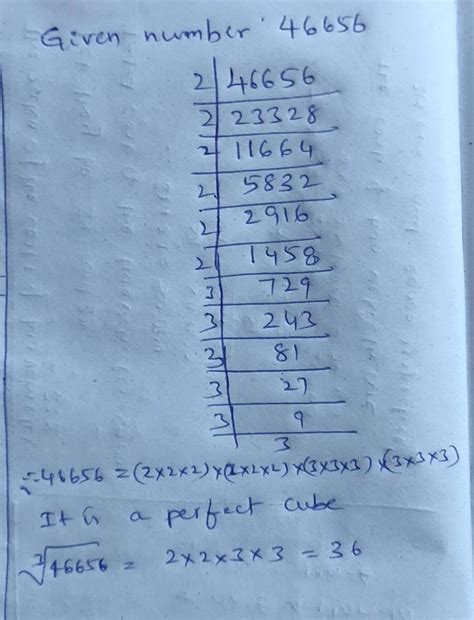 Given number 46656
2 | 46656
2 | 23328
2 | 11664
2 | 5832
2 | 2916
2 | 1458
3 | 729
3 | 243
3 | 81
3 | 27
3 | 9
3
∴ 46656 = (2×2×2)×(2×2×2)×(3×3×3)×(3×3×3)
It is a perfect cube
∛46656 = 2×2×3×3 = 36